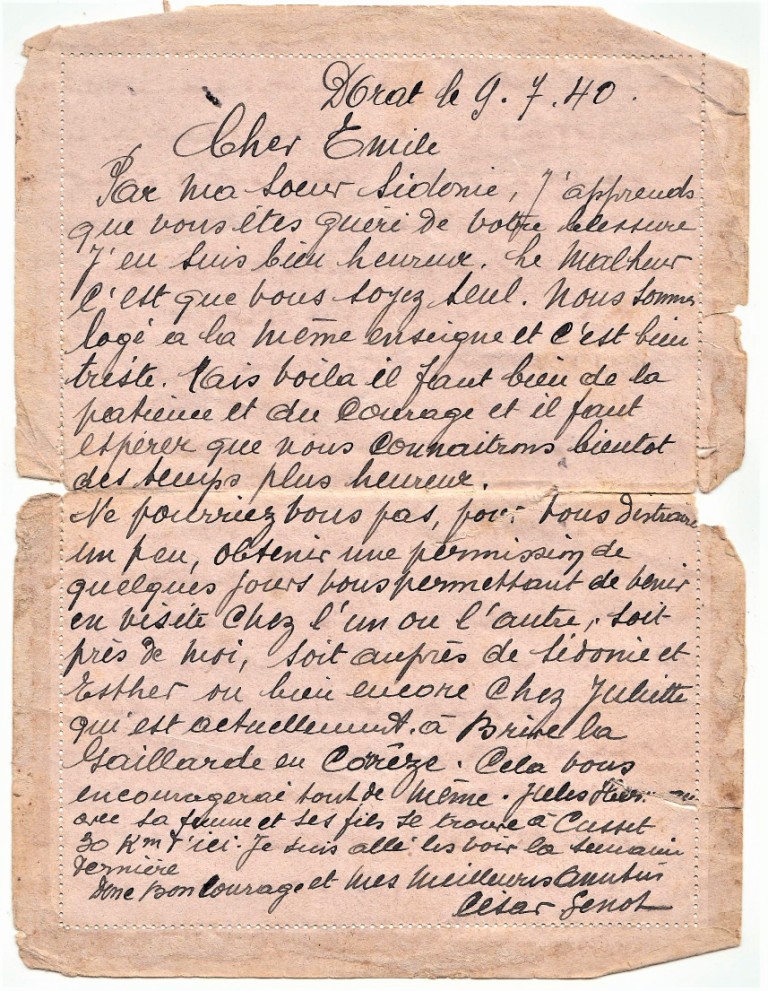 Dorat le 9.7.40.
Cher Emile
Par ma soeur Sidonie, j'apprends
que vous êtes guéri de votre blessure
J'en suis bien heureux. Le Malheur
C'est que vous soyez seul. Nous sommes
logé a la même enseigne et c'est bien
triste. Mais voila il faut bien de la
patience et du Courage et il faut
espérer que nous Connaitrons bientot
des temps plus heureux.
Ne pourriez vous pas, pour vous distraire
un peu, obtenir une permission de
quelques jours vous permettant de venir
en visite Chez l'un ou l'autre, soit
près de moi, soit auprès de Sidonie et
Esther ou bien encore Chez Juliette
qui est actuellement à Brive la
Gaillarde en Corèze. Cela vous
encouragerai tout de même. Jules
avec sa femme et ses fils se trouve à Cusset
30 Km d'ici. Je suis allé les voir la semaine
dernière
Donc Bon Courage et Mes Meilleurs Amitiés
César Genot